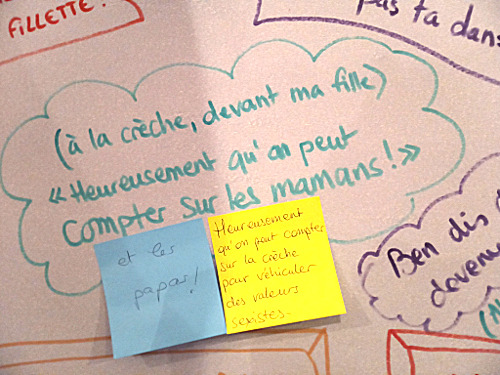 FILLETTE.
pas ta dans
(à la crèche, devant ma fille)
« Heureusement qu'on peut
compter sur les mamans ! »
et les
papas !
Heureusement
qu'on peut compter
sur la crèche
pour véhiculer
des valeurs
sexistes.
Ben dis
devenu